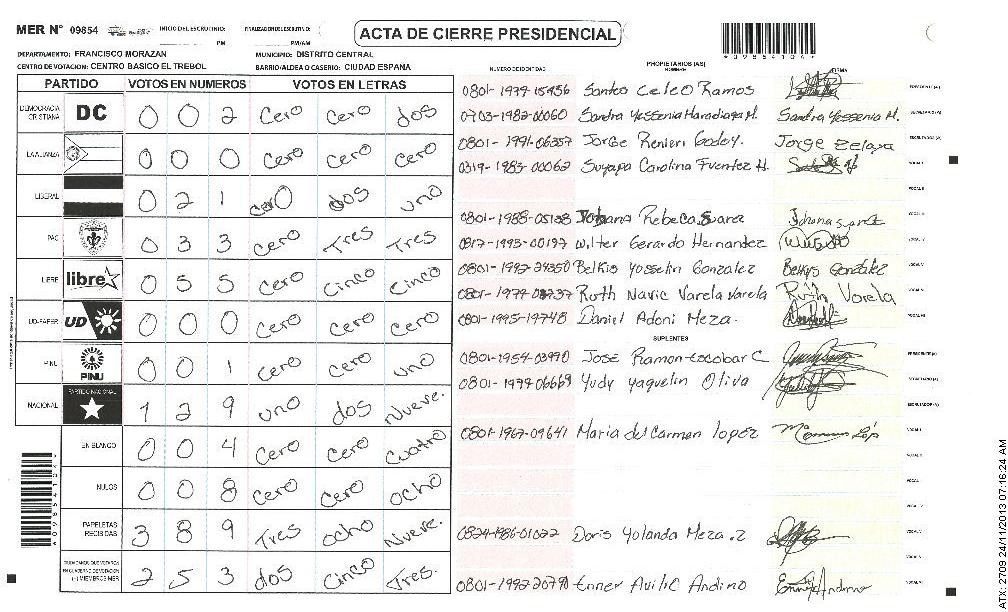 MER N° 09854 INICIO DEL ESCRUTINIO: PM FINALIZACION ESCRUTINIO: PM/AM
ACTA DE CIERRE PRESIDENCIAL
*09854104*
DEPARTAMENTO: FRANCISCO MORAZAN MUNICIPIO: DISTRITO CENTRAL
CENTRO DE VOTACION: CENTRO BASICO EL TREBOL BARRIO/ALDEA O CASERIO: CIUDAD ESPANA
PARTIDO VOTOS EN NUMEROS VOTOS EN LETRAS
DEMOCRACIA CRISTIANA DC 0 0 2 Cero Cero dos
LA ALIANZA 0 0 0 Cero Cero Cero
LIBERAL 0 2 1 cero dos uno
PAC 0 3 3 cero Tres Tres
LIBRE libre 0 5 5 cero Cinco Cinco
UD-FAPER UD 0 0 0 Cero Cero Cero
PINU PINU 0 0 1 Cero Cero uno
NACIONAL PARTIDO NACIONAL 1 2 9 uno dos Nueve.
EN BLANCO 0 0 4 Cero Cero Cuatro
NULOS 0 0 8 Cero Cero Ocho
PAPELETAS RECIBIDAS 3 8 9 Tres Ocho Nueve.
(+) MIEMBROS MER 2 5 3 dos Cinco Tres.
NUMERO DE IDENTIDAD PROPIETARIOS (AS) NOMBRE FIRMA
0801-1979-15456 Santos Celeo Ramos PRESIDENTE (A)
0703-1982-00060 Sandra Yessenia Maradiaga M. Sandra Yessenia M. SECRETARIO (A)
0801-1991-06357 Jorge Renieri Godoy. Jorge Zelaya ESCRUTADOR (A)
0319-1983-00062 Suyapa Carolina Fuentez H. VOCAL I
VOCAL II
0801-1988-05138 Johana Rebeca Suarez VOCAL III
0817-1993-00197 Wilter Gerardo Hernandez
0801-1992-24350 Belkis Yosselin Gonzalez Belkys Gonzalez VOCAL V
0801-1979-08737 Ruth Navic Varela Varela Ruth Varela
0801-1995-19748 Daniel Adoni Meza.
SUPLENTES
0801-1954-03970 José Ramon Escobar C PRESIDENTE (A)
0801-1979-06669 Yudy Yaquelin Oliva SECRETARIO (A)
ESCRUTADOR (A)
0801-1967-09641 Maria del Carmen lopez VOCAL I
VOCAL II
0824-1986-01022 Doris Yolanda Meza.z
0801-1992-20790 Enner Avilic Andino
*09854104*
ATX 2709 24/11/2013 07:16:24 AM